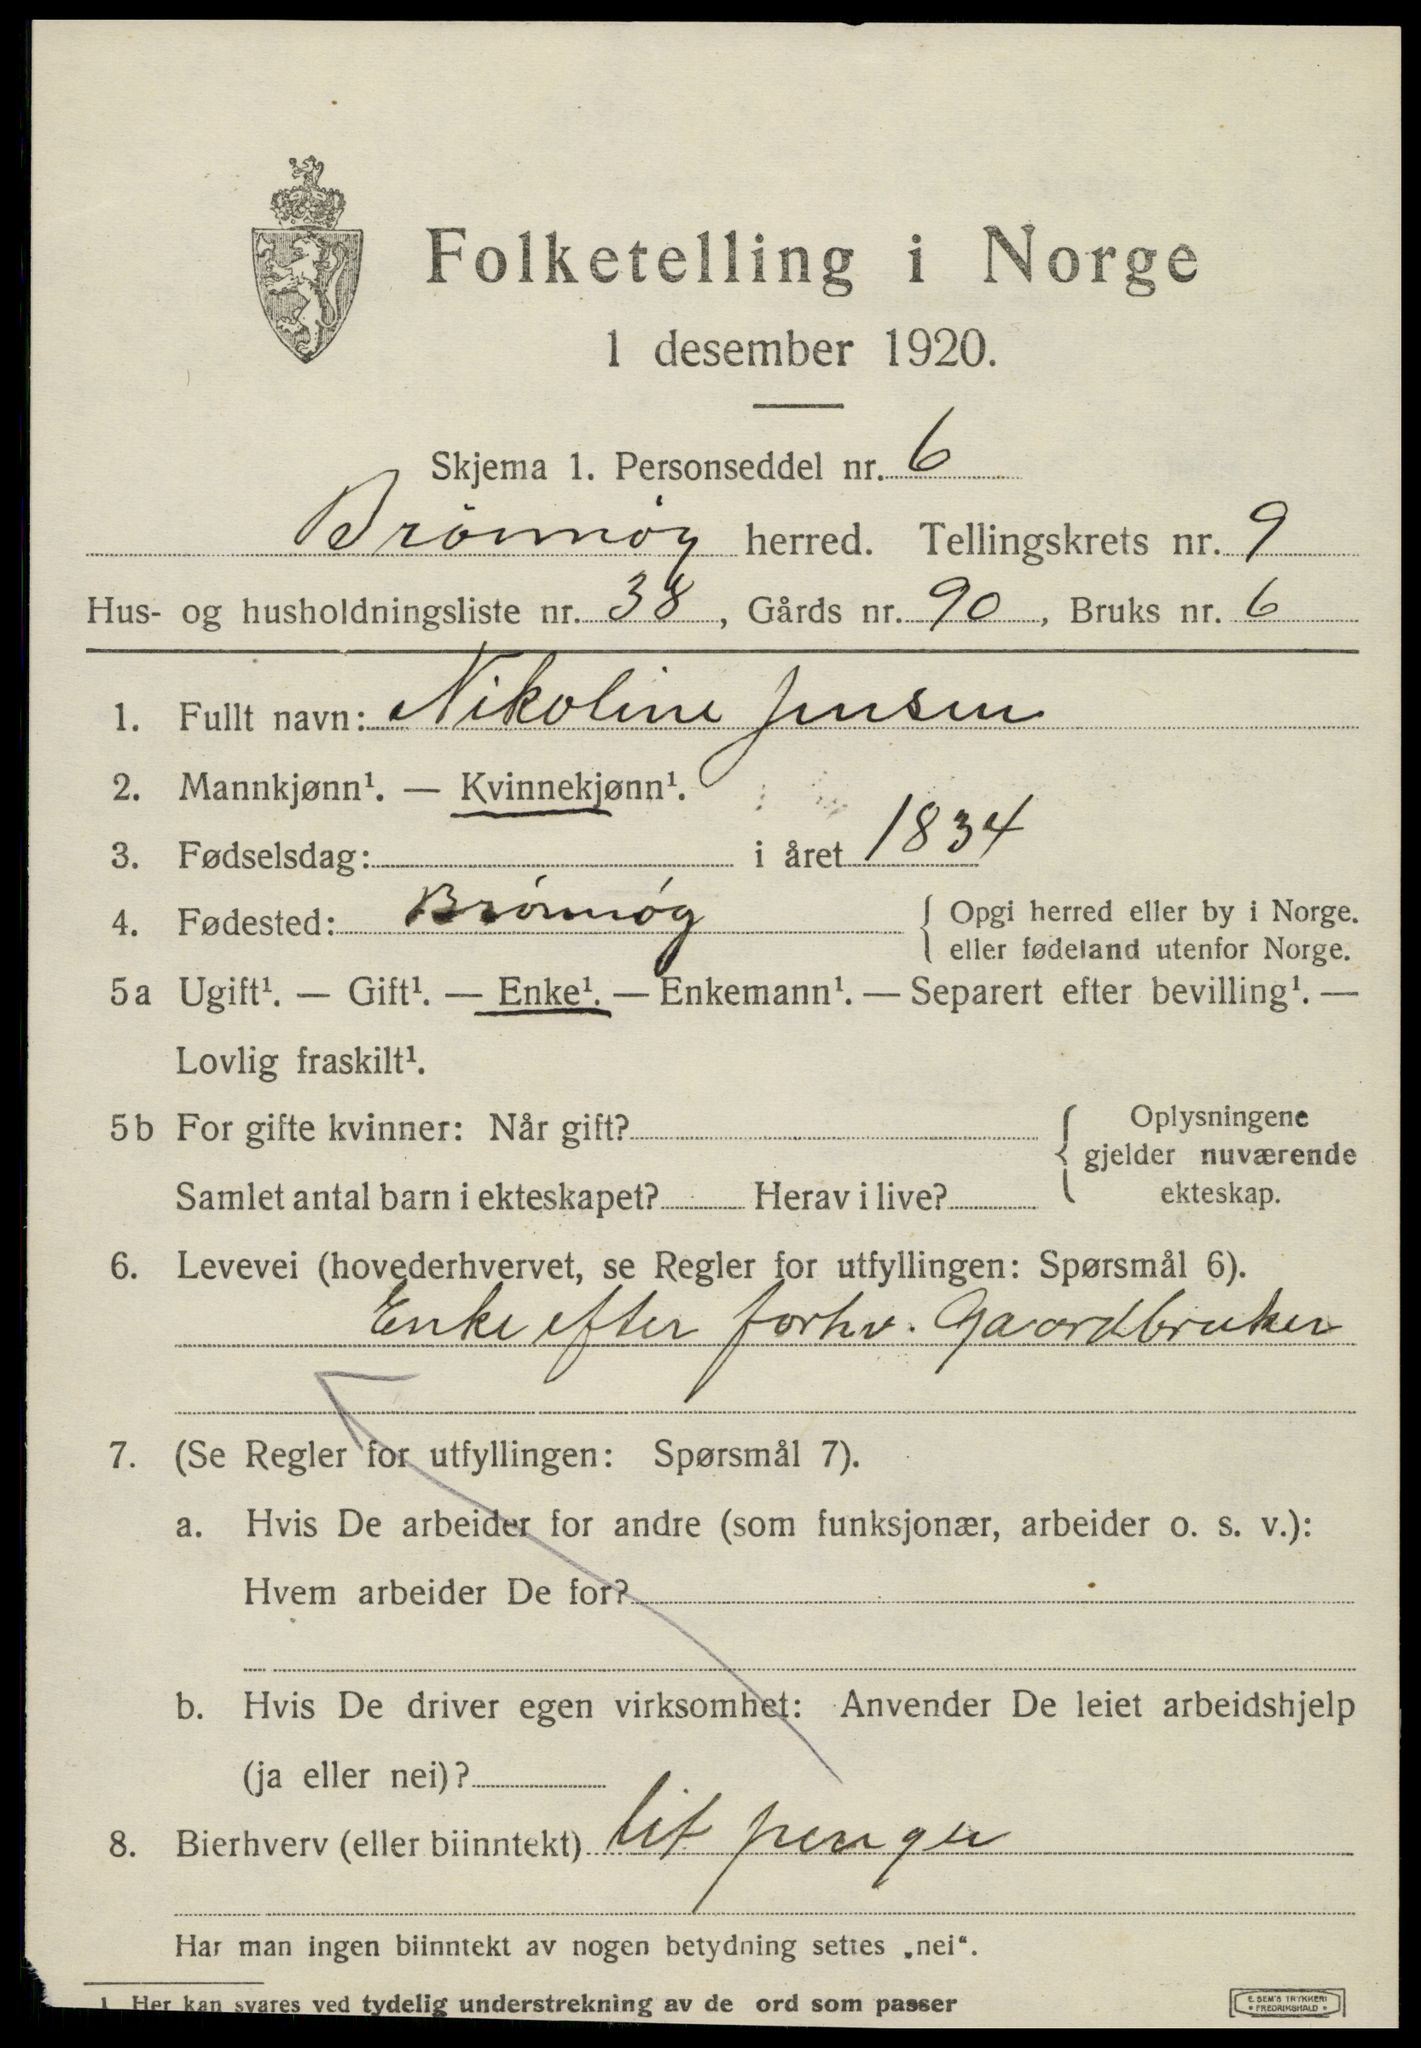 Folketelling i Norge
1 desember 1920.
Skjema 1. Personseddel nr. 6
Brönnöy herred. Tellingskrets nr. 9
Hus- og husholdningsliste nr. 38, Gårds nr. 90, Bruks nr. 6
1. Fullt navn: Nikoline Jensen
2. Mannkjønn¹. — Kvinnekjønn¹.
3. Fødselsdag: i året 1834
4. Fødested: Brönnöy { Opgi herred eller by i Norge.
eller fødeland utenfor Norge.
5a Ugift¹. — Gift¹. — Enke¹. — Enkemann¹. — Separert efter bevilling¹. —
Lovlig fraskilt¹.
5b For gifte kvinner: Når gift? { Oplysningene
gjelder nuværende
Samlet antal barn i ekteskapet? Herav i live? ekteskap.
6. Levevei (hovederhvervet, se Regler for utfyllingen: Spørsmål 6).
Enke efter forhv. Gaardbruker
7. (Se Regler for utfyllingen: Spørsmål 7).
a. Hvis De arbeider for andre (som funksjonær, arbeider o. s. v.):
Hvem arbeider De for?
b. Hvis De driver egen virksomhet: Anvender De leiet arbeidshjelp
(ja eller nei)?
8. Bierhverv (eller biinntekt) lit penger
Har man ingen biinntekt av nogen betydning settes „nei“.
1 Her kan svares ved tydelig understrekning av de ord som passer
E. SEM'S TRYKKERI
• FREDRIKSHALD •